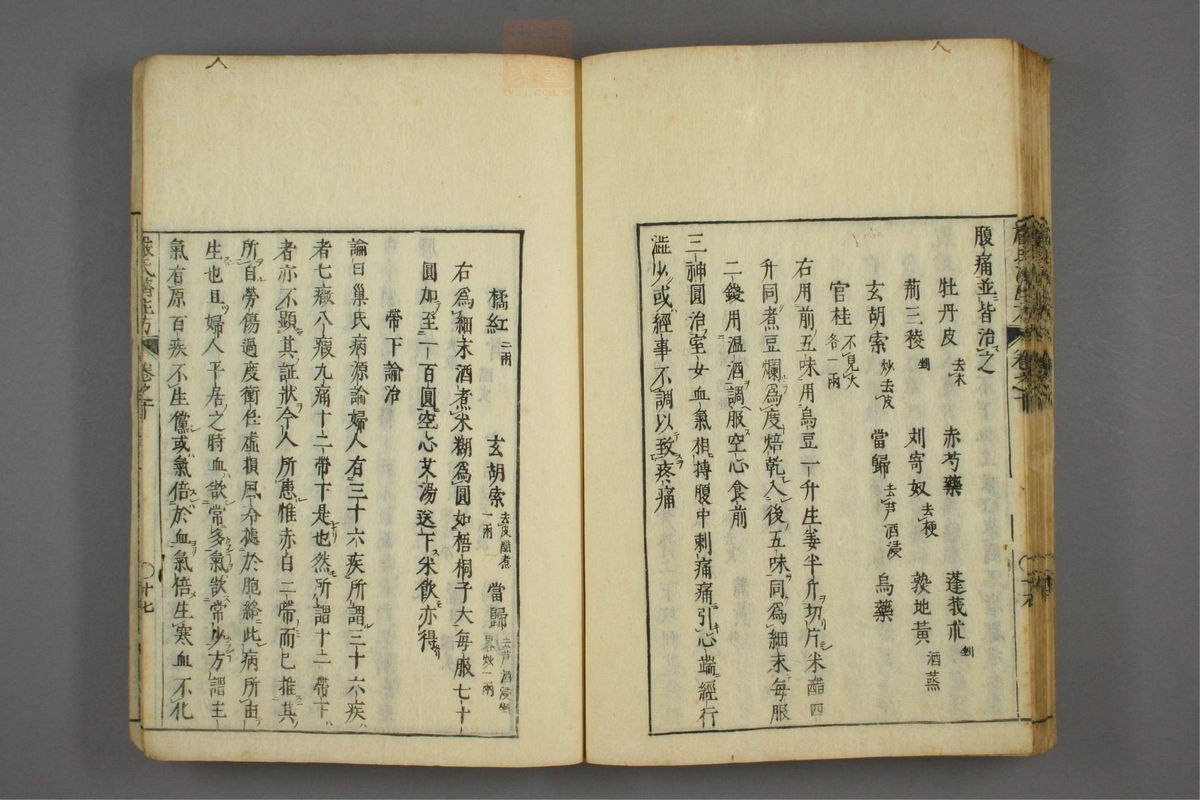 腹痛並皆治之
牡丹皮去木 赤芍藥 蓬莪朮剉
荊三稜剉 刘寄奴去梗 熟地黃酒蒸
玄胡索炒去皮 當歸去芦酒浸 烏藥
官桂不見火各一兩
右用前五味用烏豆一升生姜半斤切片米醋四
升同煮豆爛爲度焙乾入後五味同爲細末毎服
二錢用温酒調服空心食前
三神圓治室女血氣相搏腹中刺痛痛引心端經行
澁少或經事不調以致疼痛
橘紅二兩 玄胡索去皮醋煮一兩 當歸去芦酒浸剉畧炒一兩
右爲細末酒煮米糊爲圓如梧桐子大毎服七十
圓加至一百圓空心艾湯送下米飲亦得
帶下論治
論曰巢氏病源論婦人有三十六疾所謂三十六疾
者七癥八瘕九痛十二帶下是也然所謂十二帶下
者亦不顯其証狀今人所患惟赤白二帶而已推其
所自勞傷過度衝任虛損風冷據於胞絡此病所由
生也且婦人平居之時血欲常多氣欲常少方謂主
氣有原百疾不生儻或氣倍於血氣倍生寒血不化
嚴氏濟生方 卷之十 十七